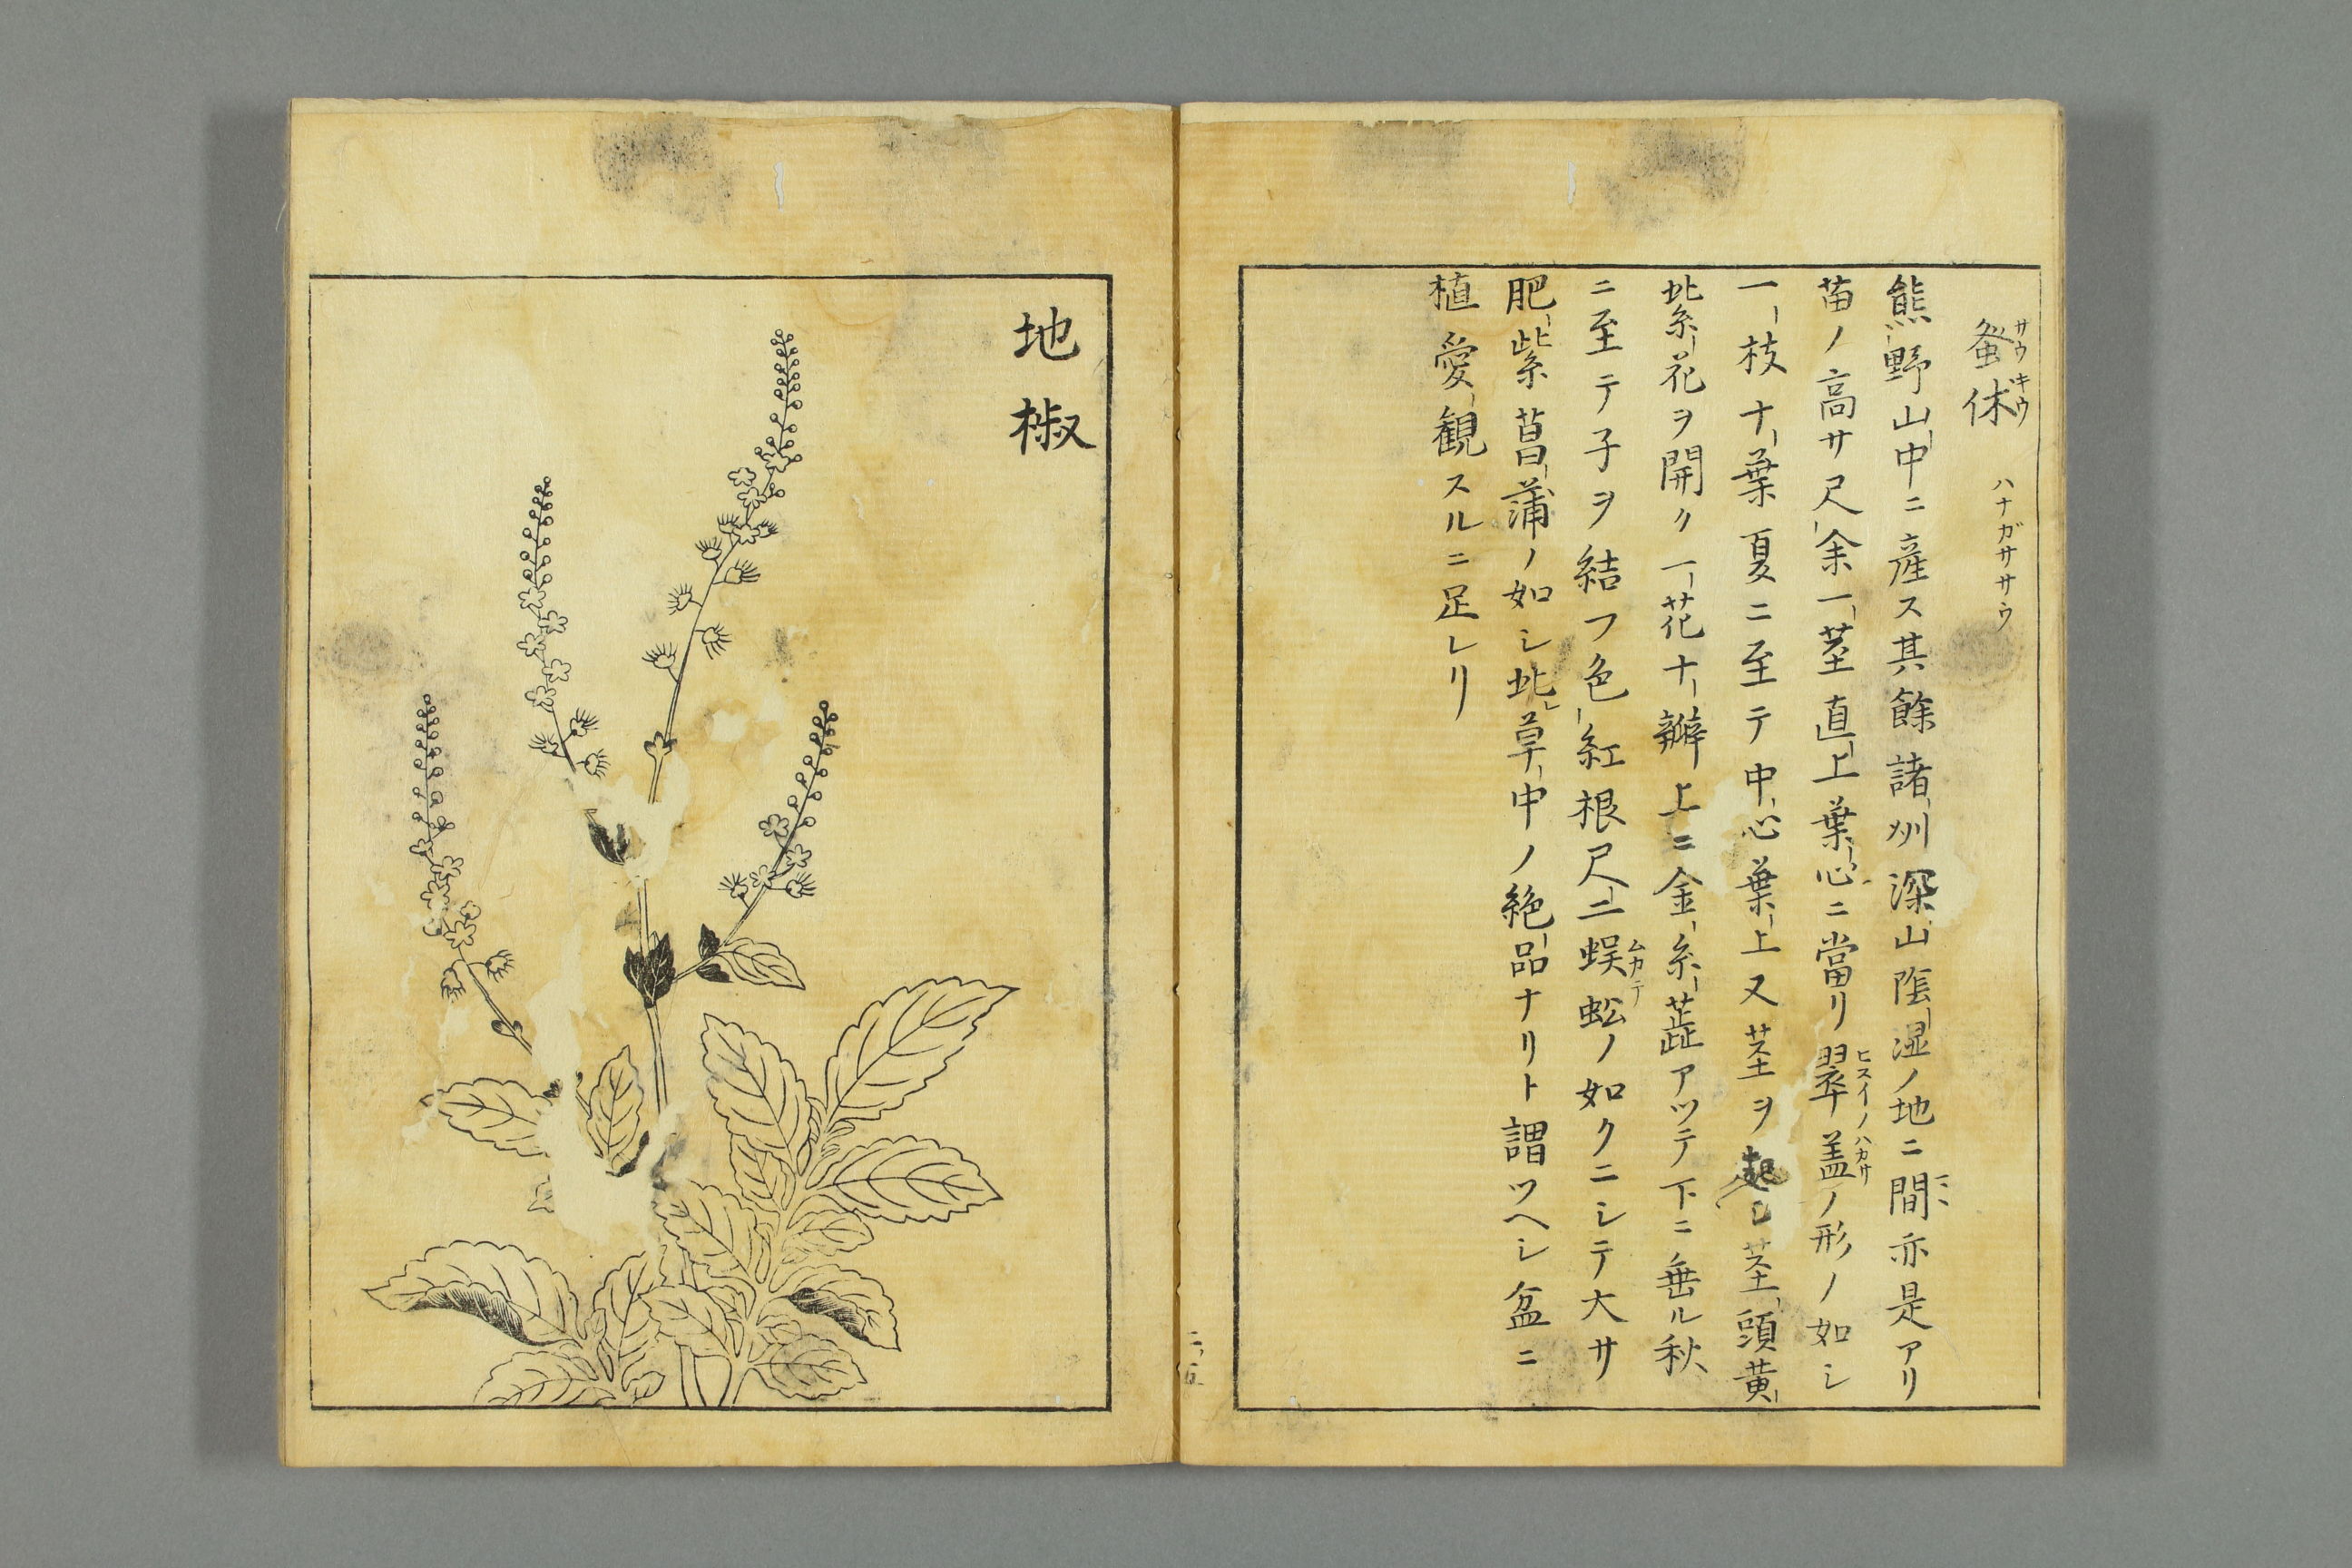 蚤休 サウキウ ハナガササウ
熊野山中ニ産ス其餘諸刕深山陰湿ノ地ニ間亦是アリ
苗ノ高サ尺余一茎直上葉心ニ當リ翠盖ノ形ノ如シ
ヒスイノハカサ
一枝十葉夏ニ至テ中心葉上又茎ヲ起シ茎頭黄
紫花ヲ開ク一花十瓣上ニ金糸蕋アツテ下ニ垂ル秋
ニ至テ子ヲ結フ色紅根尺ニ蜈蚣ノ如クニシテ大サ
ムカテ
肥紫菖蒲ノ如シ此草中ノ絶品ナリト謂ツヘシ盆ニ
植愛観スルニ足レリ
地椒